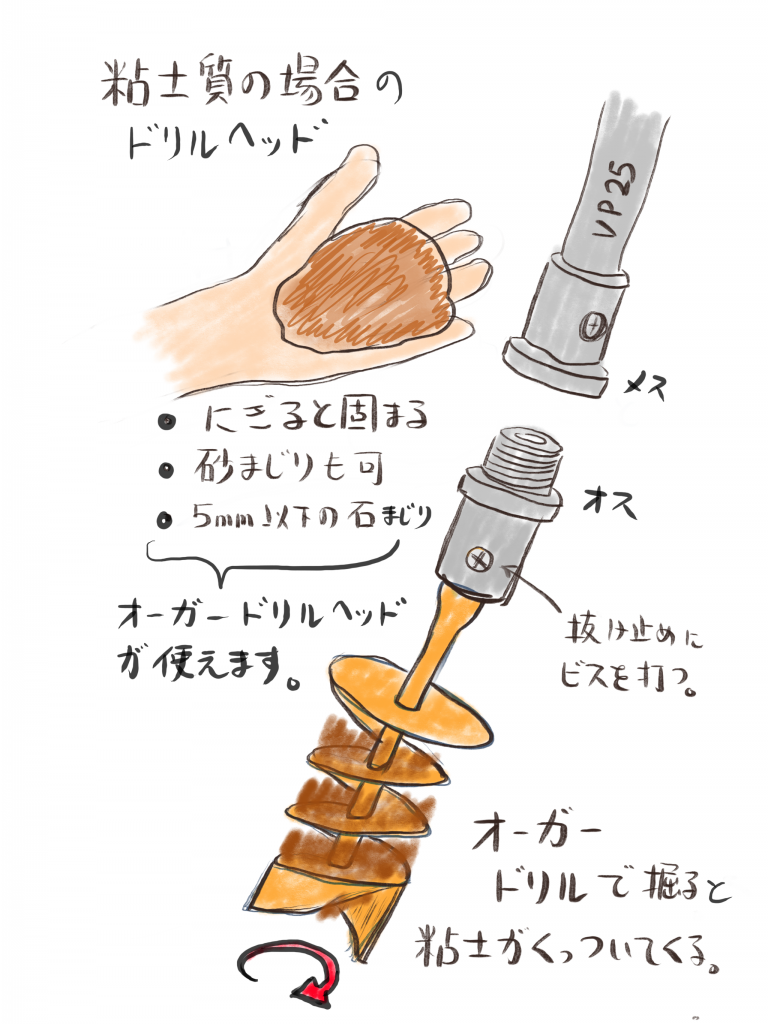 粘土質の場合の
ドリルヘッド
VP25
メス
• にぎると固まる
• 砂まじりも可
• 5mm以下の石まじり
オーガードリルヘッド
が使えます。
オス
抜け止めに
ビスを打つ。
オーガー
ドリルで掘ると
粘土がくっついてくる。